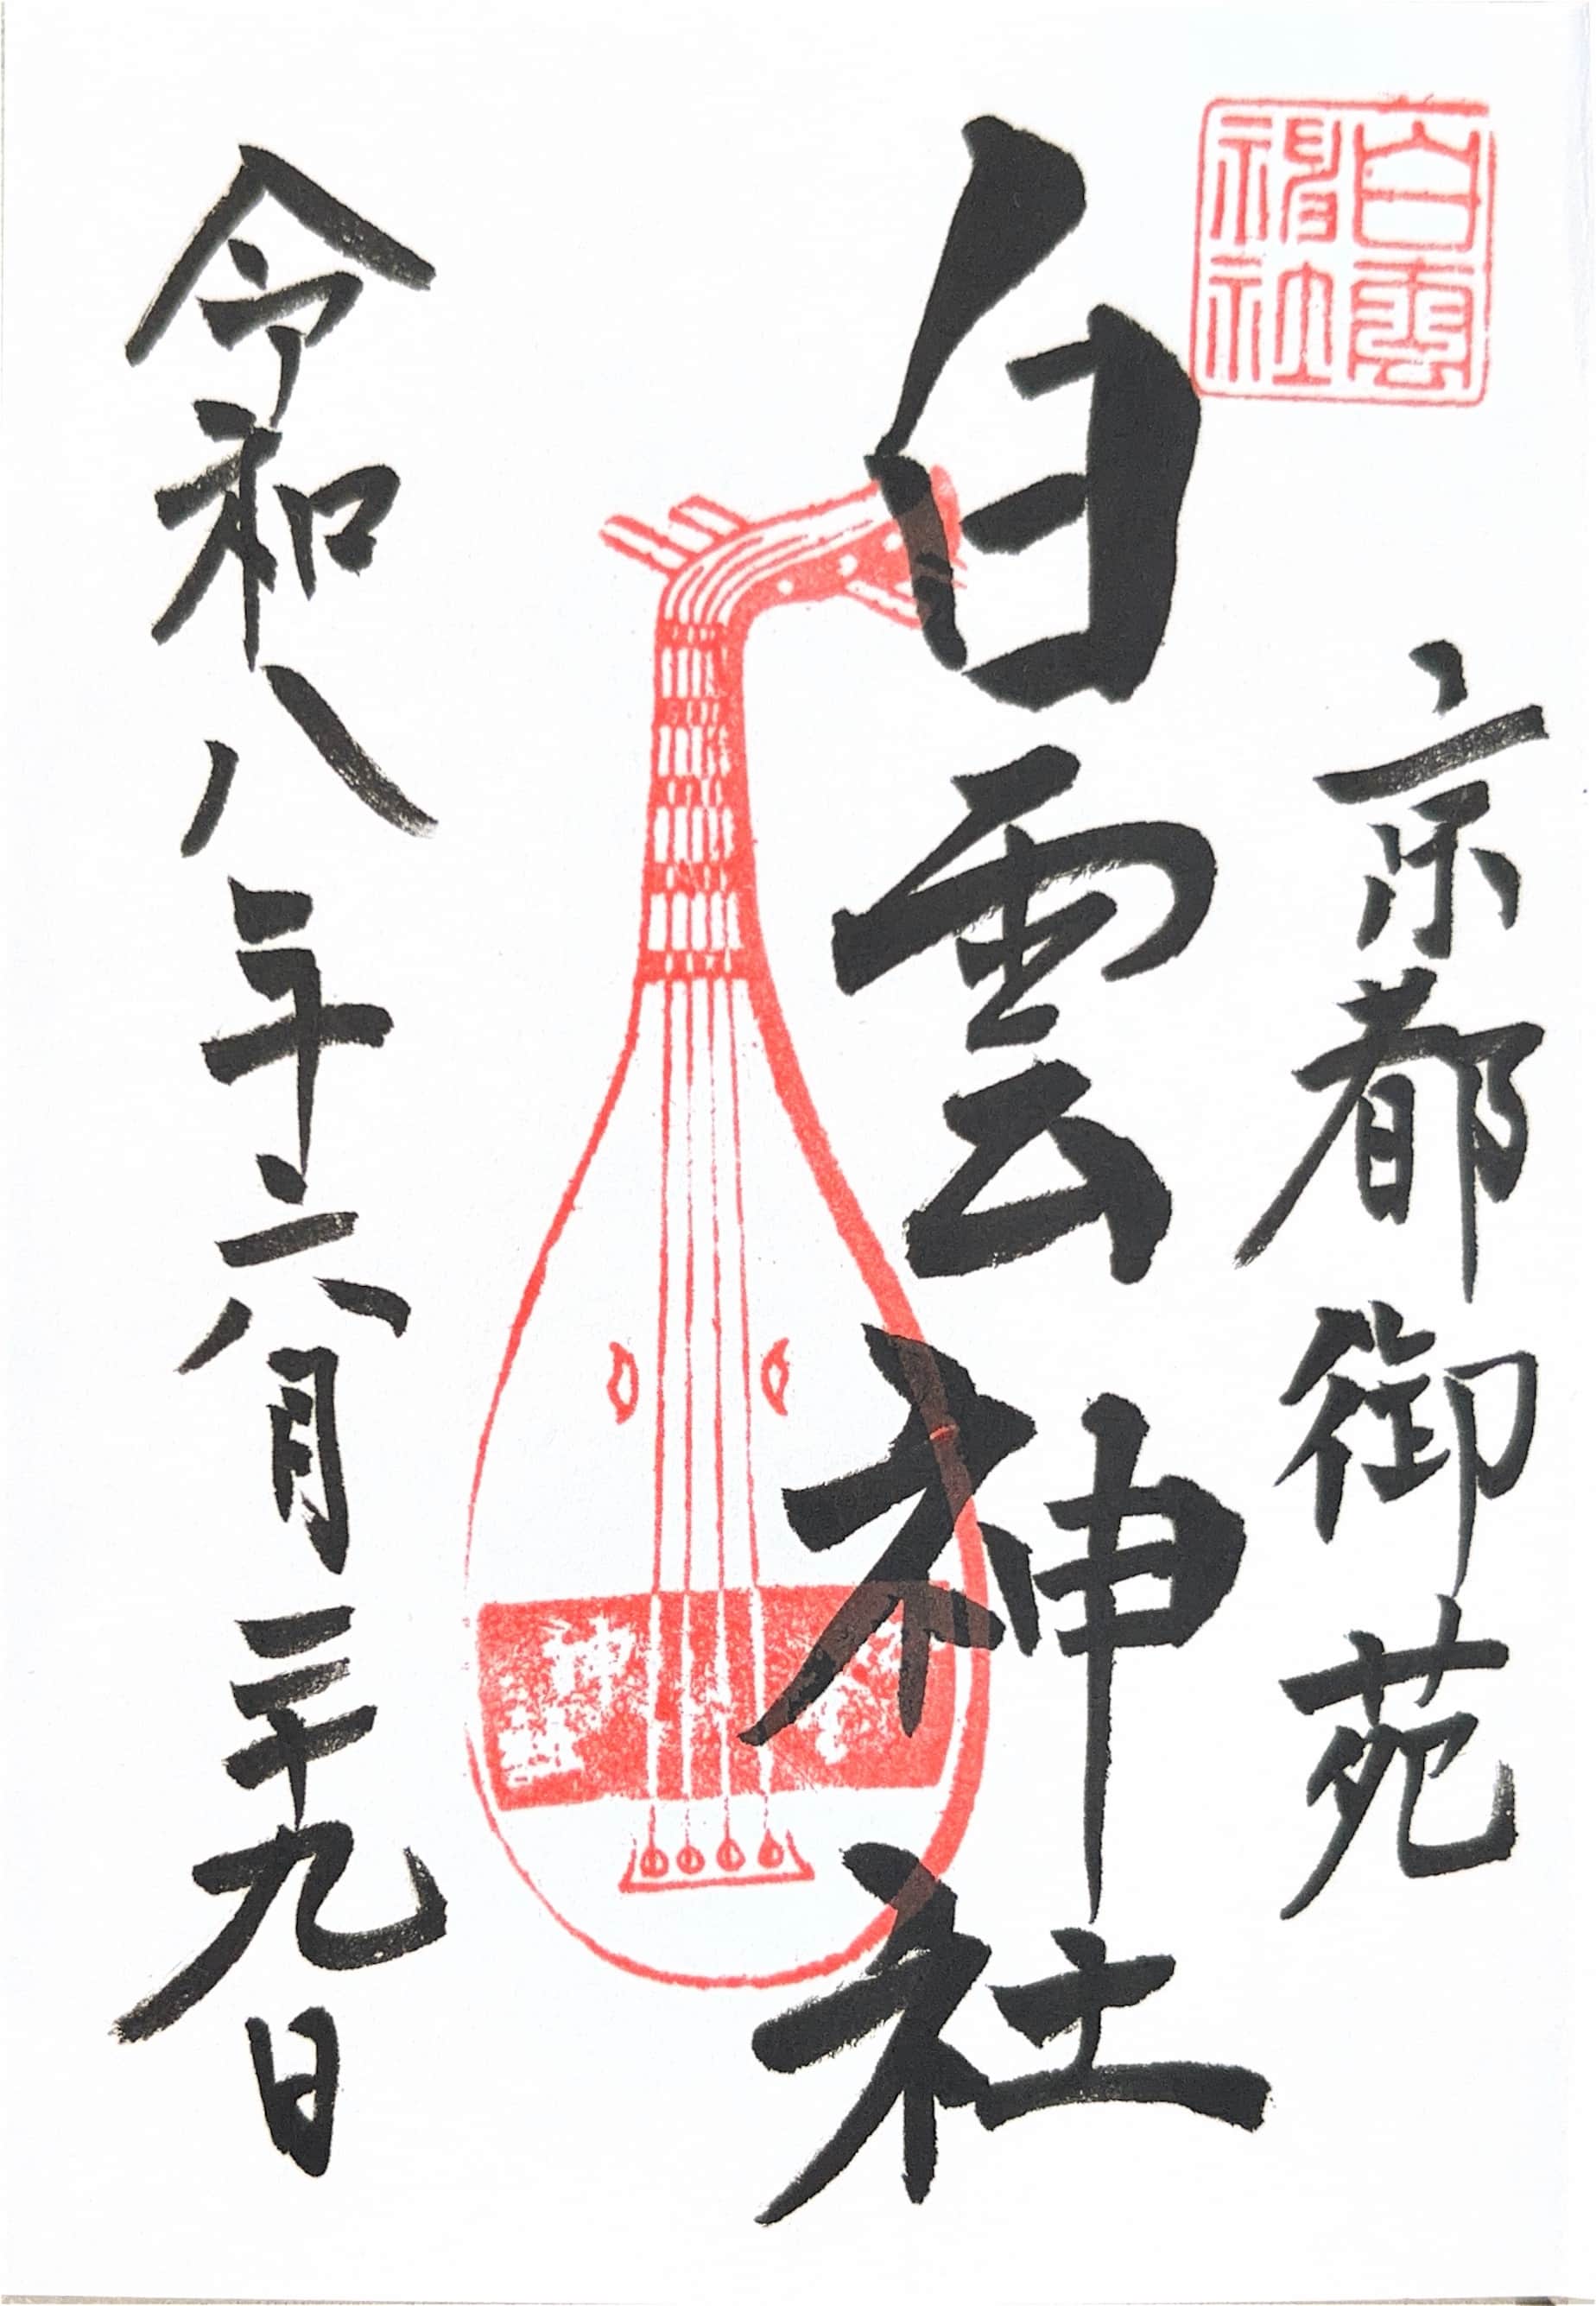 白雲
神社
京都御苑
白雲神社
令和八年六月二十九日